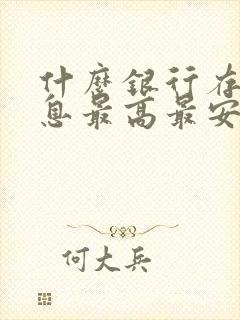 什麼銀行存
息最高最安
何大兵